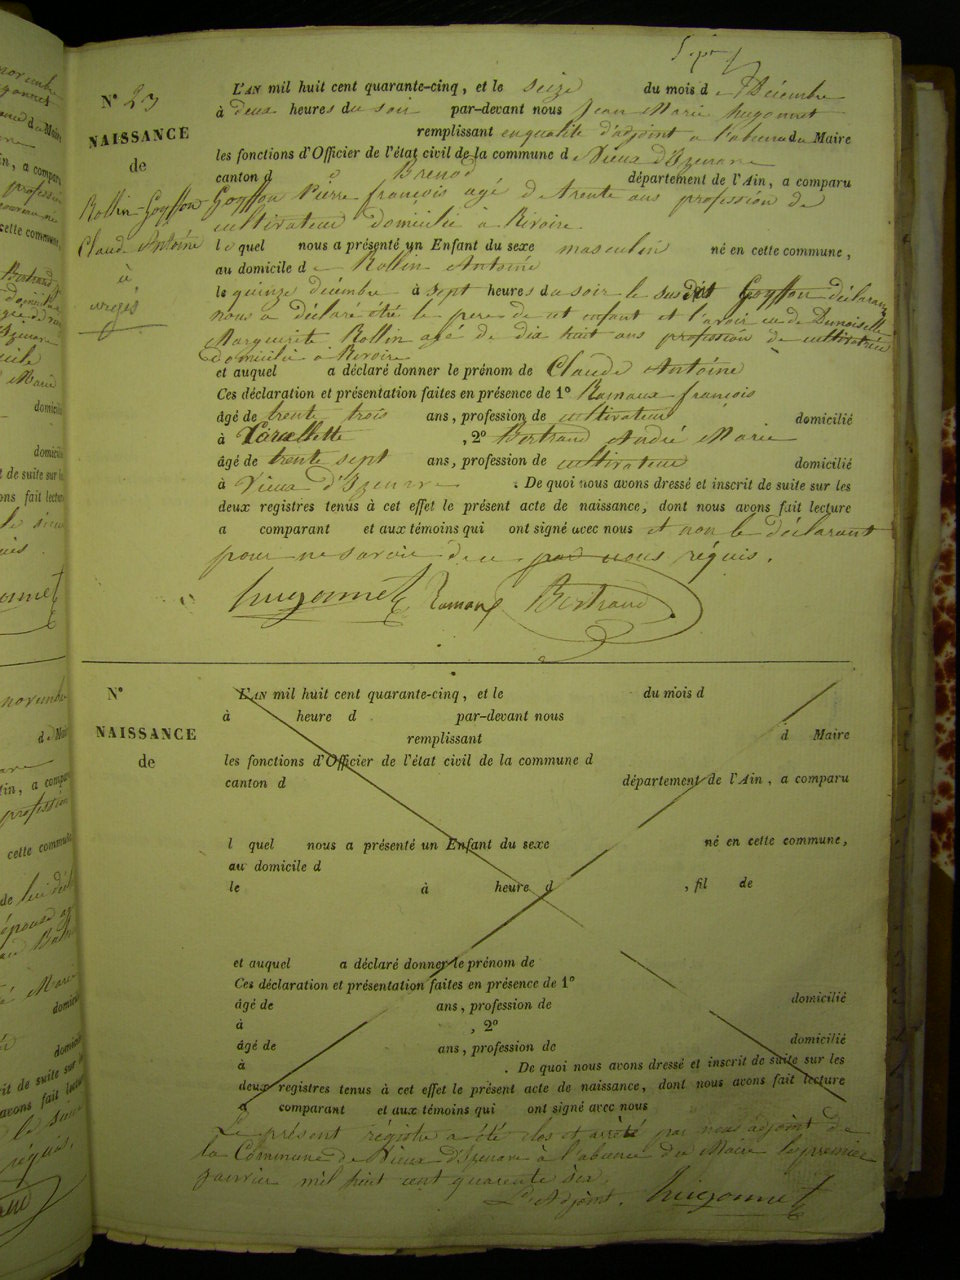 Sept
N° 23
NAISSANCE
de
Rollin-Goyffon
Claude Antoine
à
uriges
L'AN mil huit cent quarante-cinq, et le seize du mois de Décembre
à deux heures du soir par-devant nous Jean Marie hugonnet
remplissant en qualité d'adjoint à l'absence du Maire
les fonctions d'Officier de l'état civil de la commune de Vieux d'Izenave
canton d Brenod département de l'Ain, a comparu
Goyffon Pierre françois agé de trente ans profession de
cultivateur domicilié à Rivoire
lequel nous a présenté un Enfant du sexe masculin né en cette commune,
au domicile de Rollin Antoine
le quinze décembre à sept heures du soir le susdit Goyffon déclarant
nous a déclaré été le pere de cet enfant et l'avoir eu de Demoiselle
Marguerite Rollin agé de dix huit ans profession de cultivatrice
domiciliée à Rivoire
et auquel a déclaré donner le prénom de Claude Antoine
Ces déclaration et présentation faites en présence de 1° Ramaux françois
âgé de trente trois ans, profession de cultivateur domicilié
à , 2° Bertrand André Marie
âgé de trente sept ans, profession de cultivateur domicilié
à Vieux d'Izenave . De quoi nous avons dressé et inscrit de suite sur les
deux registres tenus à cet effet le présent acte de naissance, dont nous avons fait lecture
a comparant et aux témoins qui ont signé avec nous et non le déclarant
pour ne savoir de ce par nous réquis.
hugonnet Ramaux Bertrand
N°
NAISSANCE
de
L'AN mil huit cent quarante-cinq, et le du mois d
à heure d par-devant nous
remplissant d Maire
les fonctions d'Officier de l'état civil de la commune d
canton d département de l'Ain, a comparu
l quel nous a présenté un Enfant du sexe né en cette commune,
au domicile d
le à heure d , fil de
et auquel a déclaré donner le prénom de
Ces déclaration et présentation faites en présence de 1°
âgé de ans, profession de domicilié
à , 2°
âgé de ans, profession de domicilié
à . De quoi nous avons dressé et inscrit de suite sur les
deux registres tenus à cet effet le présent acte de naissance, dont nous avons fait lecture
a comparant et aux témoins qui ont signé avec nous
Le présent régistre a été clos et arrêté par nous adjoint de
la Commune de Vieux d'Izenave à l'absence du Maire le premier
janvier mil huit cent quarante six
L'Adjoint. hugonnet